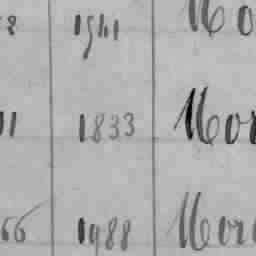 1941 Mo
11 1833 Mor
66 1988 Mor